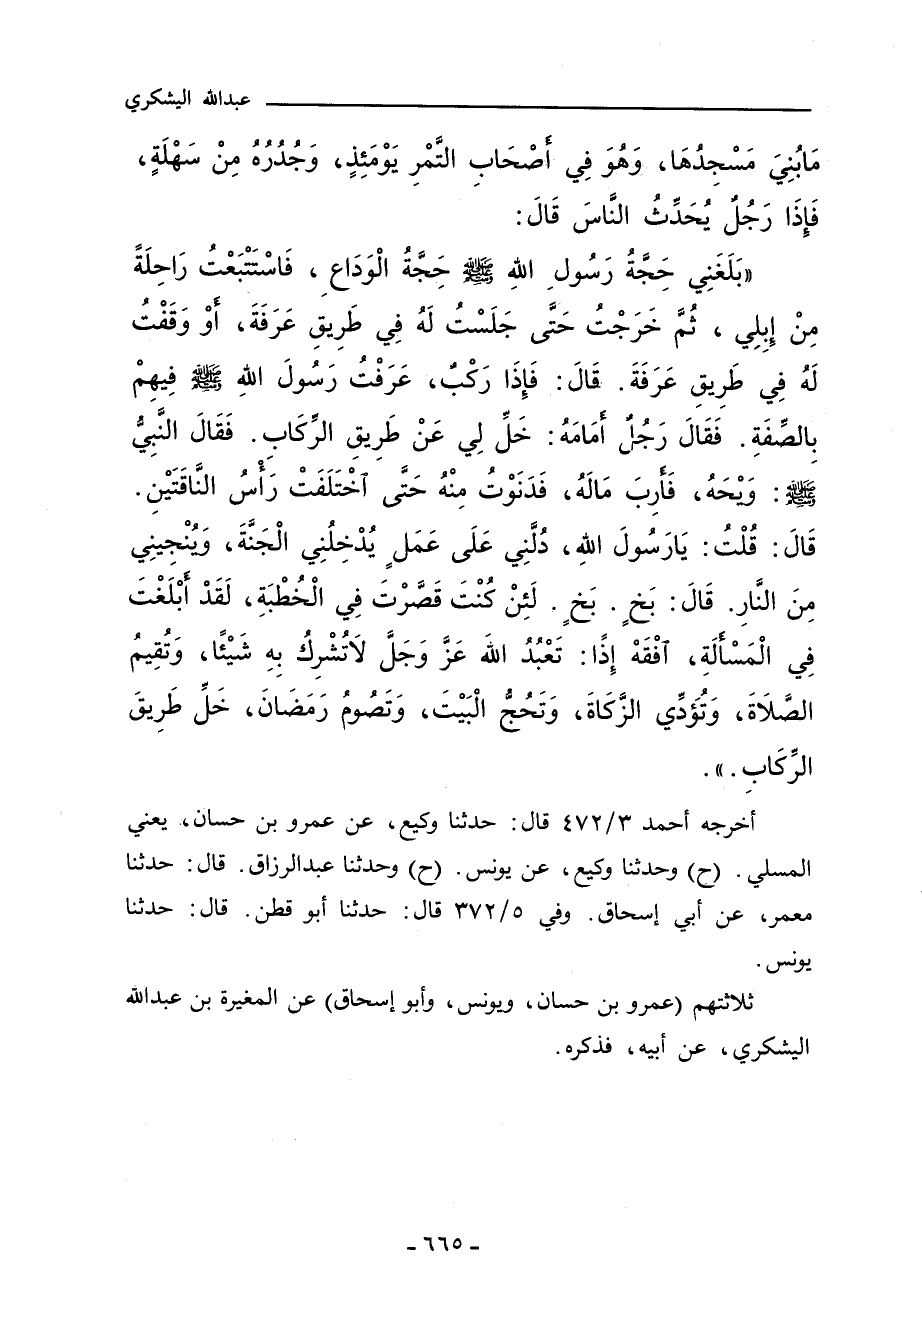 عبدالله اليشكري
مَابُنِيَ مَسْجِدُهَا، وَهُوَ فِي أَصْحَابِ التَّمْرِ يَوْمَئِذٍ، وَجُدُرُهُ مِنْ سَهْلَةٍ،
فَإِذَا رَجُلٌ يُحَدِّثُ النَّاسَ قَالَ:
«بَلَغَنِي حَجَّةُ رَسُولِ اللهِ ﷺ حَجَّةُ الْوَدَاعِ، فَاسْتَتْبَعْتُ رَاحِلَةً
مِنْ إِبِلِي، ثُمَّ خَرَجْتُ حَتَّى جَلَسْتُ لَهُ فِي طَرِيقِ عَرَفَةَ، أَوْ وَقَفْتُ
لَهُ فِي طَرِيقِ عَرَفَةَ. قَالَ: فَإِذَا رَكْبٌ، عَرَفْتُ رَسُولَ اللهِ ﷺ فِيهِمْ
بِالصِّفَةِ. فَقَالَ رَجُلٌ أَمَامَهُ: خَلِّ لِي عَنْ طَرِيقِ الرِّكَابِ. فَقَالَ النَّبِيُّ
ﷺ: وَيْحَهُ، فَأَرِبَ مَالَهُ، فَدَنَوْتُ مِنْهُ حَتَّى اخْتَلَفَتْ رَأْسُ النَّاقَتَيْنِ.
قَالَ: قُلْتُ: يَارَسُولَ اللهِ، دُلَّنِي عَلَى عَمَلٍ يُدْخِلُنِي الْجَنَّةَ، وَيُنْجِينِي
مِنَ النَّارِ. قَالَ: بَخٍ. بَخٍ. لَئِنْ كُنْتَ قَصَّرْتَ فِي الْخُطْبَةِ، لَقَدْ أَبْلَغْتَ
فِي الْمَسْأَلَةِ، افْقَهْ إِذًا: تَعْبُدُ اللهَ عَزَّ وَجَلَّ لَاتُشْرِكُ بِهِ شَيْئًا، وَتُقِيمُ
الصَّلَاةَ، وَتُؤَدِّي الزَّكَاةَ، وَتَحُجُّ الْبَيْتَ، وَتَصُومُ رَمَضَانَ، خَلِّ طَرِيقَ
الرِّكَابِ.».
أخرجه أحمد ٤٧٢/٣ قال: حدثنا وكيع، عن عمرو بن حسان، يعني
المسلي. (ح) وحدثنا وكيع، عن يونس. (ح) وحدثنا عبدالرزاق. قال: حدثنا
معمر، عن أبي إسحاق. وفي ٣٧٢/٥ قال: حدثنا أبو قطن. قال: حدثنا
يونس.
ثلاثتهم (عمرو بن حسان، ويونس، وأبو إسحاق) عن المغيرة بن عبدالله
اليشكري، عن أبيه، فذكره.
- ٦٦٥ -